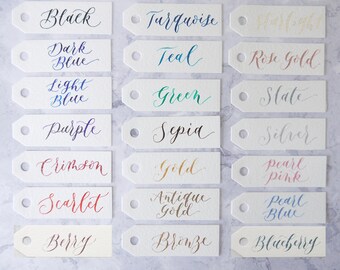 Black
Turquoise
Starlight
Dark
Blue
Teal
Rose Gold
Light
Blue
Green
Slate
Purple
Sepia
Silver
Crimson
Gold
Pearl
Pink
Scarlet
Antique
Gold
Pearl
Blue
Berry
Bronze
Blueberry